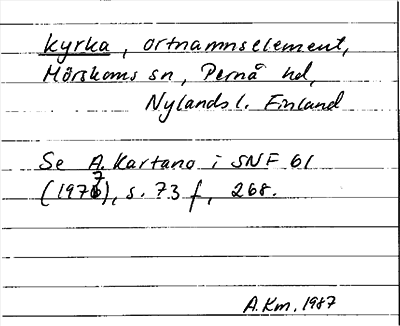 kyrka, ortnamnselement,
Mörskoms sn, Pernå hd,
Nylands l. Finland
Se A. Kartano i SNF 61
(1977), s. 73 f, 268.
A.Km. 1987